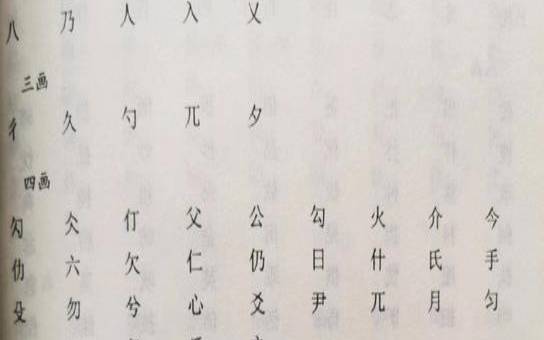 八 乃 人 入 乂
三画
彳 久 勺 兀 夕
四画
勾 仌 仃 父 公 勾 火 介 今
仂 六 欠 仁 仍 日 什 氏 手
殳 勿 兮 心 爻 尹 兀 月 匀